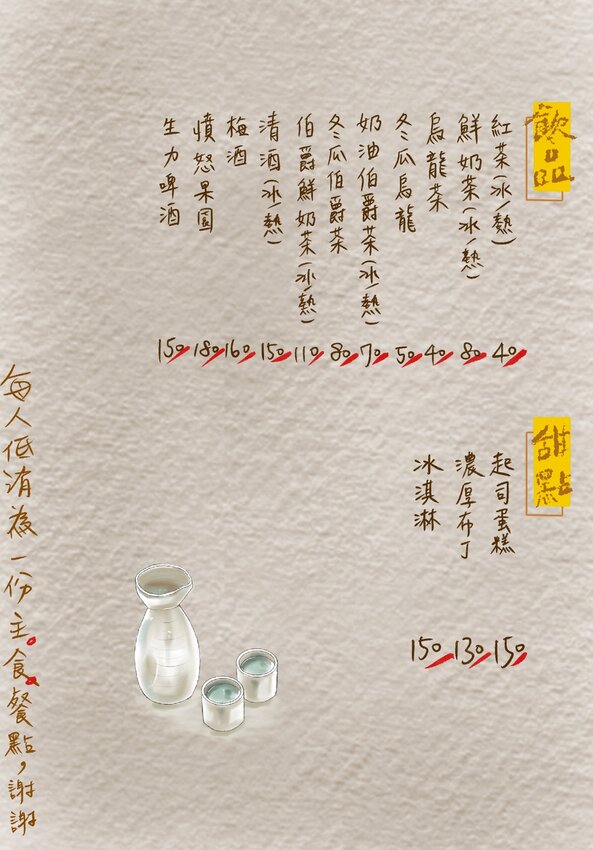 飲品
紅茶(冰/熱) 40
鮮奶茶(冰/熱) 80
烏龍茶 40
冬瓜烏龍 50
奶油伯爵茶(冰/熱) 70
冬瓜伯爵茶 80
伯爵鮮奶茶(冰/熱) 110
清酒(冰/熱) 150
梅酒 160
憤怒果園 180
生力啤酒 150
甜點
起司蛋糕 150
濃厚布丁 130
冰淇淋 150
每人低消為一份主食餐點，謝謝